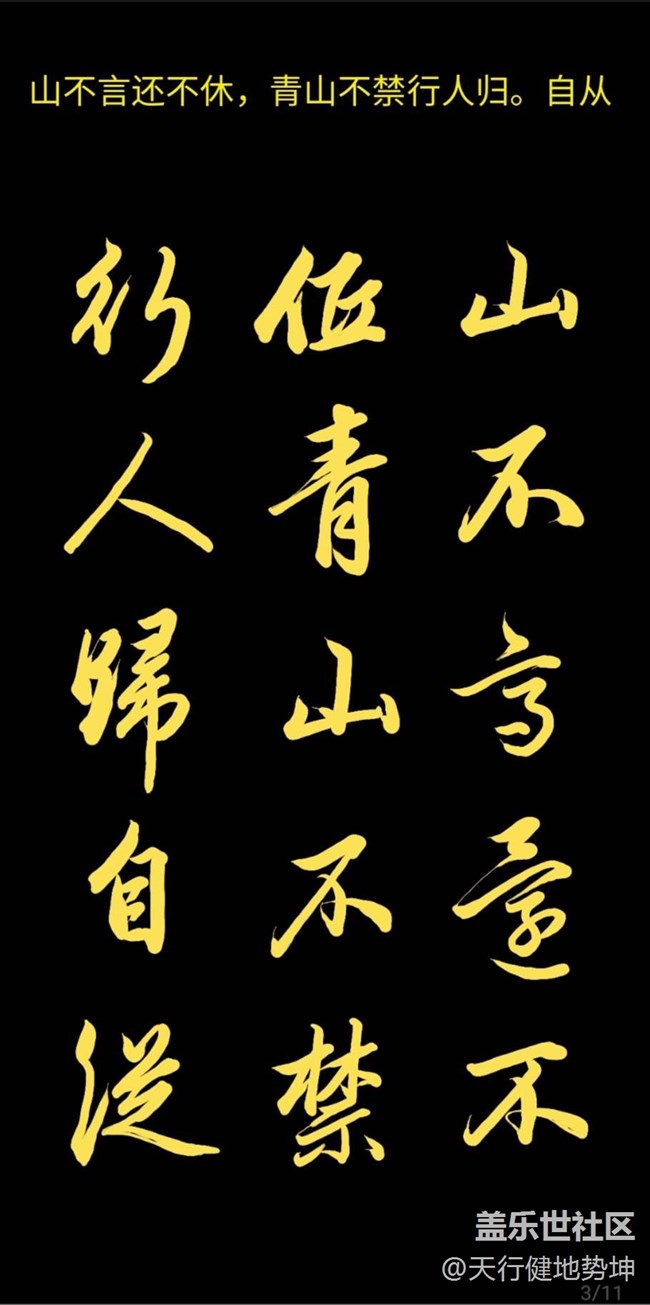 山不言还不休，青山不禁行人归。自从
山不言還不
青山不禁
行人歸自從
盖乐世社区
@天行健地势坤
3/11